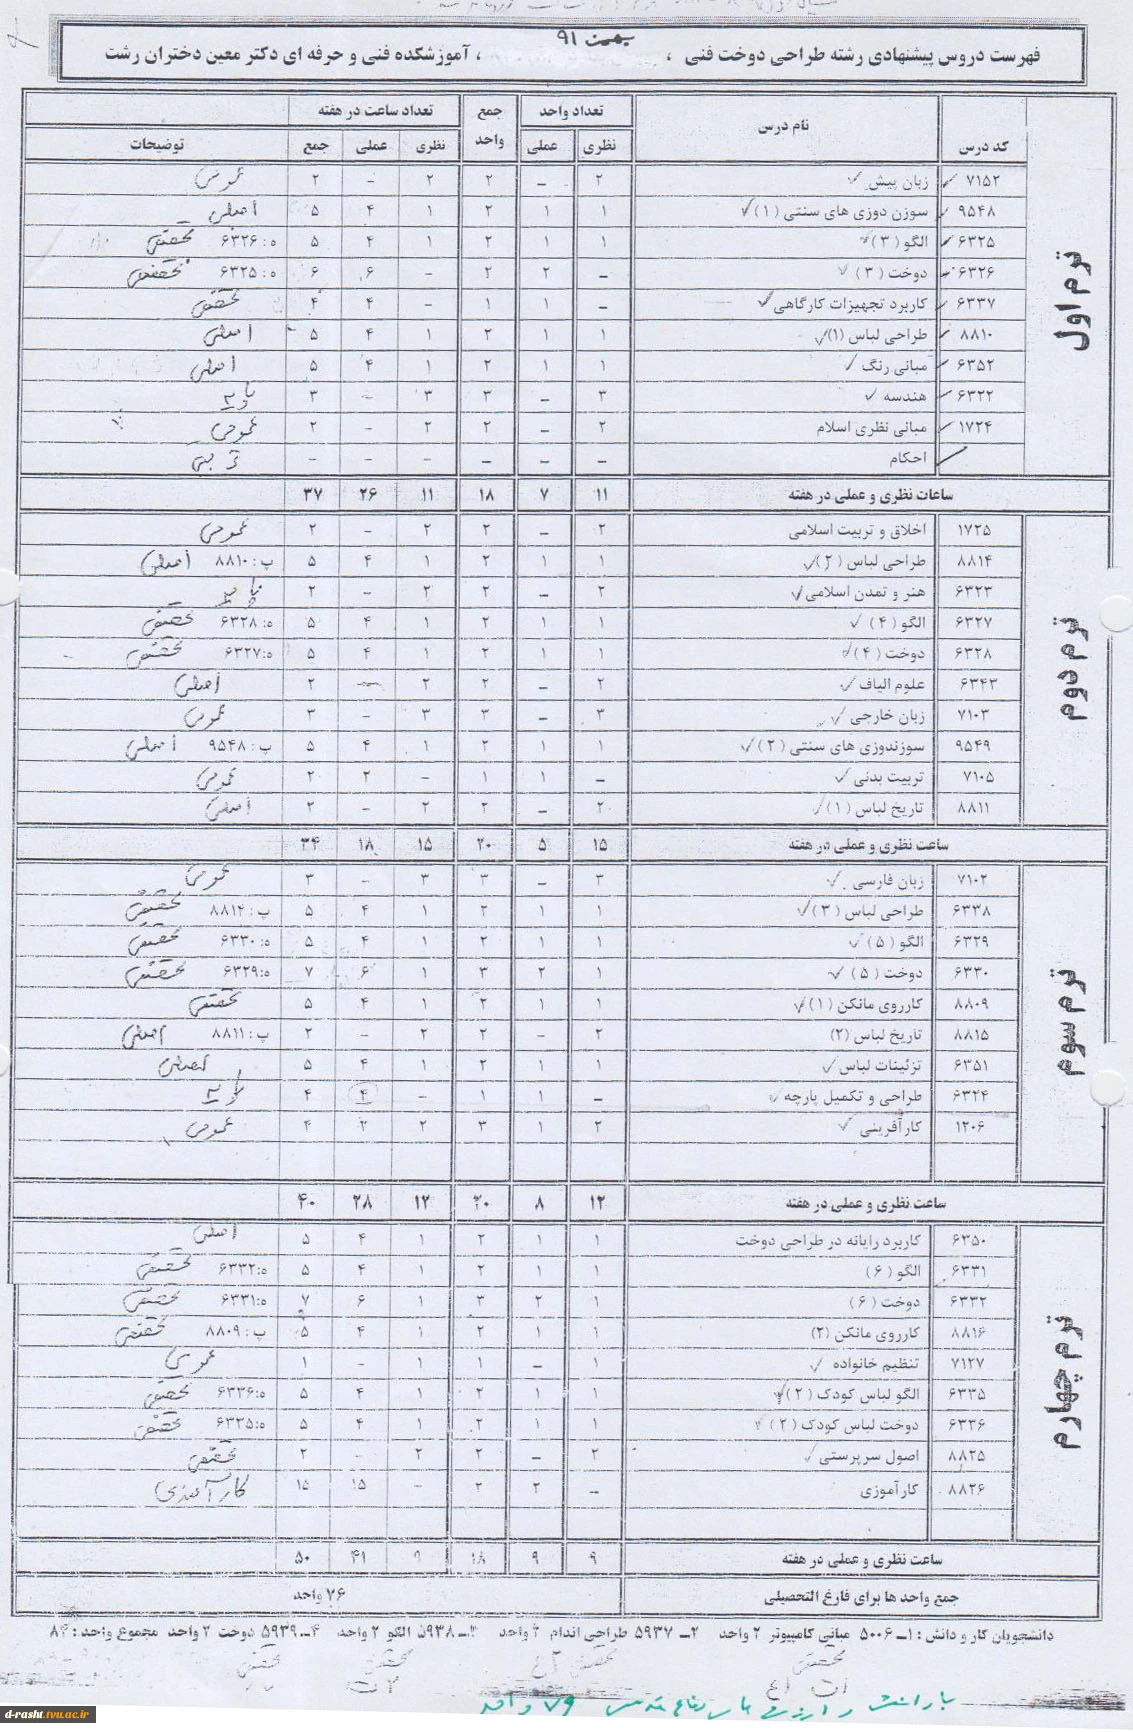 بهمن ۹۱
فهرست دروس پیشنهادی رشته طراحی دوخت فنی ، ، آموزشکده فنی و حرفه ای دکتر معین دختران رشت
کد درس نام درس تعداد واحد جمع واحد تعداد ساعت در هفته توضیحات
نظری عملی نظری عملی جمع
ترم اول
۷۱۵۲ زبان پیش ۲ – ۲ ۲ – ۲ عمومی
۹۵۴۸ سوزن دوزی های سنتی (۱) ۱ ۱ ۲ ۱ ۴ ۵ اصلی
۶۳۲۵ الگو (۳) ۱ ۱ ۲ ۱ ۴ ۵ ه: ۶۳۲۶ تخصصی
۶۳۲۶ دوخت (۳) – ۲ ۲ – ۶ ۶ ه: ۶۳۲۵ تخصصی
۶۳۳۷ کاربرد تجهیزات کارگاهی – ۱ ۱ – ۴ ۴ تخصصی
۸۸۱۰ طراحی لباس (۱) ۱ ۱ ۲ ۱ ۴ ۵ اصلی
۶۳۵۲ مبانی رنگ ۱ ۱ ۲ ۱ ۴ ۵ اصلی
۶۳۲۲ هندسه ۳ – ۳ ۳ – ۳ پایه
۱۷۲۴ مبانی نظری اسلام ۲ – ۲ ۲ – ۲ عمومی
احکام – – – – – –
ساعات نظری و عملی در هفته ۱۱ ۷ ۱۸ ۱۱ ۲۶ ۳۷
ترم دوم
۱۷۲۵ اخلاق و تربیت اسلامی ۲ – ۲ ۲ – ۲ عمومی
۸۸۱۴ طراحی لباس (۲) ۱ ۱ ۲ ۱ ۴ ۵ پ: ۸۸۱۰ اصلی
۶۳۲۳ هنر و تمدن اسلامی ۲ – ۲ ۲ – ۲ پایه
۶۳۲۷ الگو (۴) ۱ ۱ ۲ ۱ ۴ ۵ ه: ۶۳۲۸ تخصصی
۶۳۲۸ دوخت (۴) ۱ ۱ ۲ ۱ ۴ ۵ ه: ۶۳۲۷ تخصصی
۶۳۴۳ علوم الیاف ۲ – ۲ ۲ – ۲ اصلی
۷۱۰۳ زبان خارجی ۳ – ۳ ۳ – ۳ عمومی
۹۵۴۹ سوزندوزی های سنتی (۲) ۱ ۱ ۲ ۱ ۴ ۵ پ: ۹۵۴۸ اصلی
۷۱۰۵ تربیت بدنی – ۱ ۱ – ۲ ۲ عمومی
۸۸۱۱ تاریخ لباس (۱) ۲ – ۲ ۲ – ۲ اصلی
ساعت نظری و عملی در هفته ۱۵ ۵ ۲۰ ۱۵ ۱۸ ۳۴
ترم سوم
۷۱۰۲ زبان فارسی ۳ – ۳ ۳ – ۳ عمومی
۶۳۳۸ طراحی لباس (۳) ۱ ۱ ۲ ۱ ۴ ۵ پ: ۸۸۱۴ تخصصی
۶۳۲۹ الگو (۵) ۱ ۱ ۲ ۱ ۴ ۵ ه: ۶۳۳۰ تخصصی
۶۳۳۰ دوخت (۵) ۱ ۲ ۳ ۱ ۶ ۷ ه: ۶۳۲۹ تخصصی
۸۸۰۹ کارروی مانکن (۱) ۱ ۱ ۲ ۱ ۴ ۵ تخصصی
۸۸۱۵ تاریخ لباس (۲) ۲ – ۲ ۲ – ۲ پ: ۸۸۱۱ اصلی
۶۳۵۱ تزئینات لباس ۱ ۱ ۲ ۱ ۴ ۵ اصلی
۶۳۲۴ طراحی و تکمیل پارچه – ۱ ۱ – ۴ ۴ پایه
۱۲۰۶ کارآفرینی ۲ ۱ ۳ ۲ ۲ ۴ عمومی
ساعت نظری و عملی در هفته ۱۲ ۸ ۲۰ ۱۲ ۲۸ ۴۰
ترم چهارم
۶۳۵۰ کاربرد رایانه در طراحی دوخت ۱ ۱ ۲ ۱ ۴ ۵ اصلی
۶۳۳۱ الگو (۶) ۱ ۱ ۲ ۱ ۴ ۵ ه: ۶۳۳۲ تخصصی
۶۳۳۲ دوخت (۶) ۱ ۲ ۳ ۱ ۶ ۷ ه: ۶۳۳۱ تخصصی
۸۸۱۶ کارروی مانکن (۲) ۱ ۱ ۲ ۱ ۴ ۵ پ: ۸۸۰۹ تخصصی
۷۱۲۷ تنظیم خانواده ۱ – ۱ ۱ – ۱ عمومی
۶۳۳۵ الگو لباس کودک (۲) ۱ ۱ ۲ ۱ ۴ ۵ ه: ۶۳۳۶ تخصصی
۶۳۳۶ دوخت لباس کودک (۲) ۱ ۱ ۲ ۱ ۴ ۵ ه: ۶۳۳۵ تخصصی
۸۸۲۵ اصول سرپرستی ۲ – ۲ ۲ – ۲ تخصصی
۸۸۲۶ کارآموزی – ۲ ۲ – ۱۵ ۱۵ کارآموزی
ساعت نظری و عملی در هفته ۹ ۹ ۱۸ ۹ ۴۱ ۵۰
جمع واحد ها برای فارغ التحصیلی ۷۶ واحد
دانشجویان کار و دانش : ۱ـ ۵۰۰۶ مبانی کامپیوتر ۲ واحد ۲ـ ۵۹۳۷ طراحی اندام ۲ واحد ۳ـ ۵۹۳۸ الگو ۲ واحد ۴ـ ۵۹۳۹ دوخت ۲ واحد مجموع واحد : ۸۴
تخصصی تخصصی تخصصی تخصصی
با دانش و ارزش های دفاع مقدس ۷۶ واحد
d-rasht.tvu.ac.ir